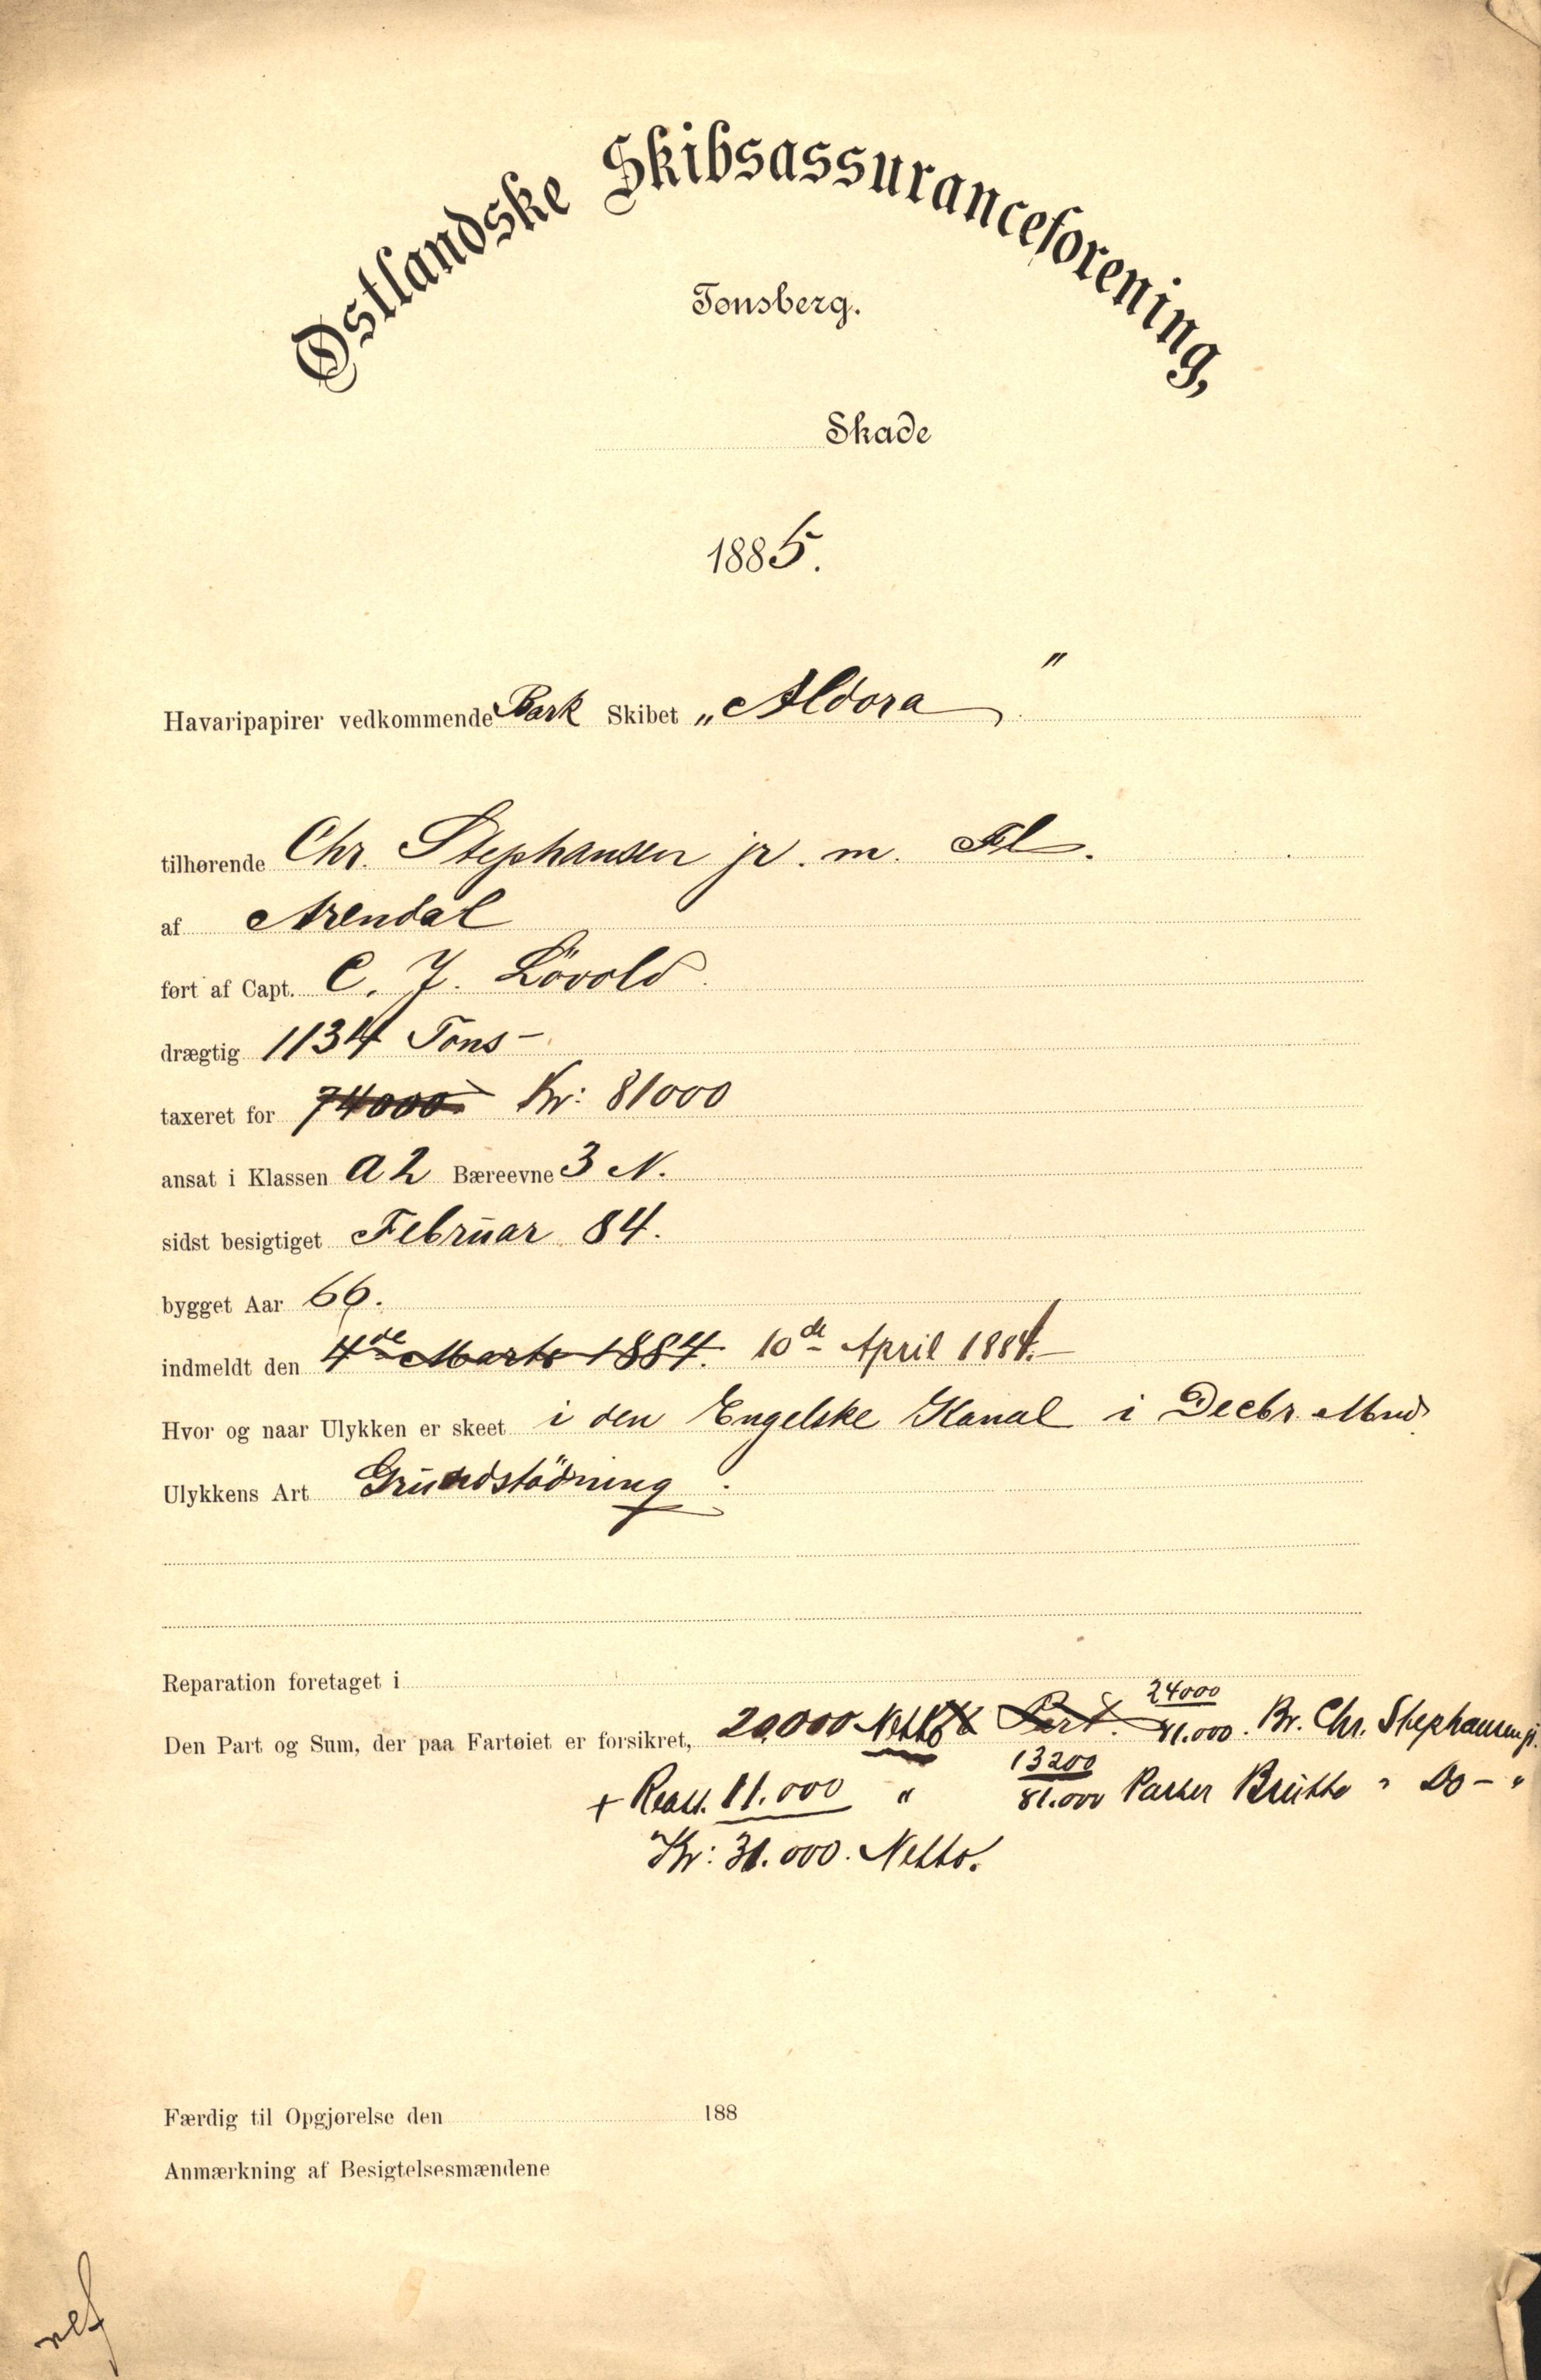 Østlandske Skibsassuranceforening,
Tønsberg.
Skade
1885.
Havaripapirer vedkommende Bark Skibet „Aldora"
tilhørende Chr. Stephansen jr. m. Fl.
af Arendal
ført af Capt. C. J. Lövold
drægtig 1134 Tons -
taxeret for 74000 Kr: 81000
ansat i Klassen A 2 Bæreevne 3 N.
sidst besigtiget Februar 84.
bygget Aar 66.
indmeldt den 4de Marts 1884. 10de April 1884.-
Hvor og naar Ulykken er skeet i den Engelske Kanal i Decbr Mnd.
Ulykkens Art Grundstödning.
Reparation foretaget i
Den Part og Sum, der paa Fartøiet er forsikret, 20,000 Netto Part. 24000/81.000. Br. Chr. Stephansen jr.
+ Reass. 11.000 " 13200/81.000 Parter Brutto " Do - "
Kr: 31.000. Netto.
Færdig til Opgjørelse den 188
Anmærkning af Besigtelsesmændene